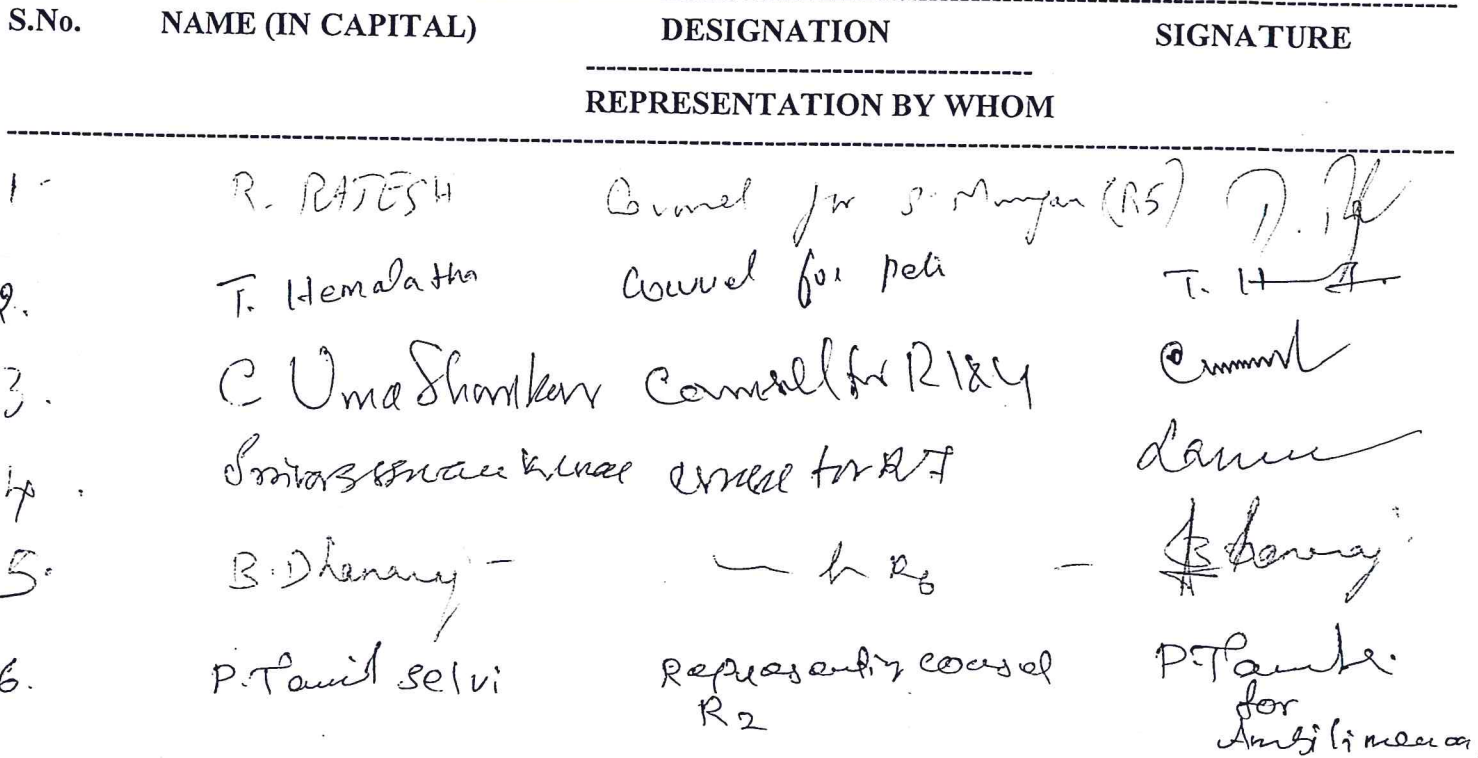 S.No. NAME (IN CAPITAL) DESIGNATION SIGNATURE
REPRESENTATION BY WHOM
1- R. RAJESH Counsel for S. Murugan (R5)
2. T. Hemalatha Counsel for peti T. H
3. C Uma Shankar Counsel for R1&4
4. for R7
5. B. Dhanaraj - — for R6 — B Dhanaraj
6. P. Tamil selvi Representing counsel P. Tamil
R2 for